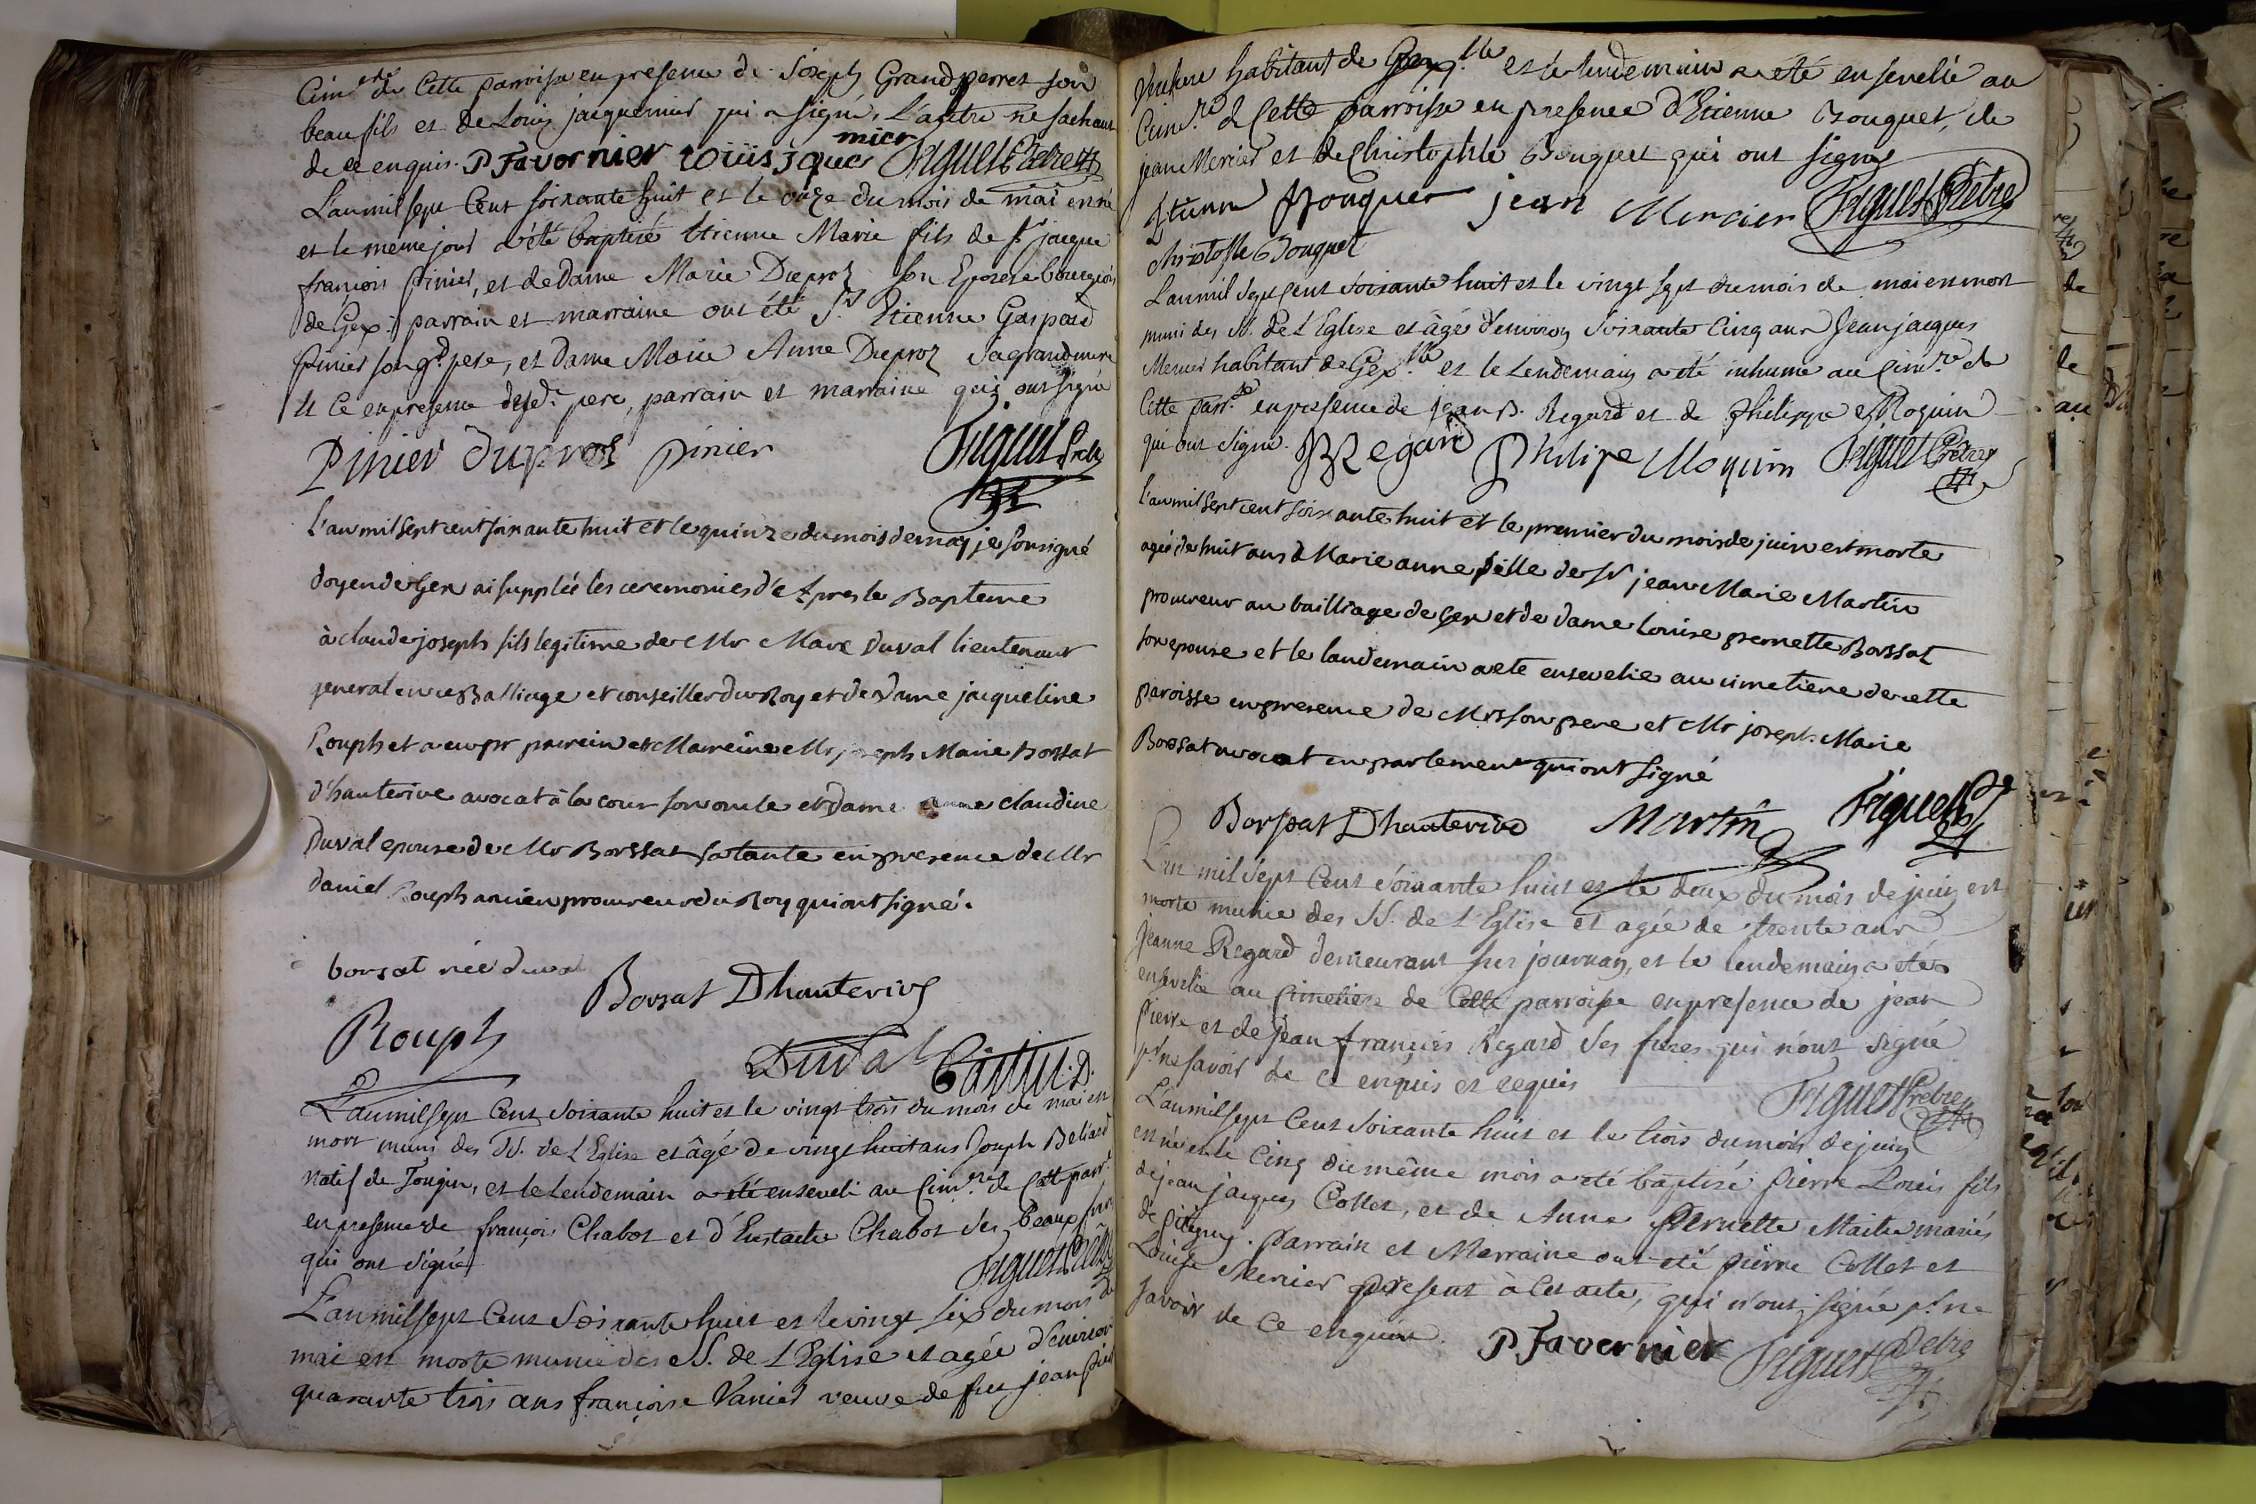 Cim.re de Cette parroisse en presence de Joseph Grandperret son
beau fils et de Louis jacquemier qui a signé, L'autre ne sachant
de ce enquis. P Favernier Loüis jaquemier Figuet Prêtre
L'an mil sept Cent soixante huit et le onze du mois de mai est né
et le même jour a été baptisé Etienne Marie fils de Sr jacque
françois Pinier, et de Dame Marie Duproz son Epouse bourgeois
de Gex. parrain et marraine ont été Sr Etienne Gaspard
Pinier son gd pere, et Dame Marie Anne Duproz sa grand mere
et ce en presence desd. pere, parrain et marraine qui ont signé
Pinier duproz pinier Figuet Prêtre
L'an mil sept cent soixante huit et le quinze du mois de may je sousigné
doyen de Gex ai supplée les ceremonies d'Apres le Bapteme
à claude joseph fils legitime de Mr Marc Duval lieutenant
general en ce Balliage et conseiller du Roy et de Dame jacqueline
Rouph et a eu pr parein et Mareine Mr joseph Marie Borssat
d'hauterive avocat à la cour son oncle et Dame claudine
Duval epouse de Mr Borssat sa tante en presence de Mr
daniel Rouph ancien procureur du Roy qui ont signé.
borsat née duval Borsat Dhauterive
Rouph Duval Castin. D.
L'an mil sept Cent soixante huit et le vingt trois du mois de mai est
mort muni des SS. de L'Eglise et âgé de vingt huit ans Joseph Beliard
natif de Tougin, et le Lendemain a été enseveli au Cim.re de Cette parr.
en presence de françois Chabot et d'Eustache Chabot ses beaux freres
qui ont signé Figuet Prêtre
L'an mil sept Cent Soixante huit et le vingt six du mois de
mai est morte munie des SS. de L'Eglise et agée d'environ
quarante trois ans françoise Vanier veuve de feu jean
habitant de Gex et le lendemain a été ensevelie au
Cim.re de Cette parroisse en presence d'Etienne Bouquet, de
jean Mercier et de Christophle Bouquet qui ont signé
Etienne Bouquet jean Mercier Figuet Prêtre
christofle Bouquet
L'an mil Sept Cent Soixante huit et le vingt sept du mois de mai est mort
muni des SS. de L'Eglise et âgé d'environ soixante Cinq ans Jean jacques
Mercier habitant de Gex et le Lendemain a été inhumé au Cim.re de
Cette parr. en presence de jean B. Regard et de Philippe Moquin
qui ont signé. JB Regard Philipe Moquin Figuet Prêtre
L'an mil sept cent soixante huit et le premier du mois de juin est morte
agée de huit ans Marie anne fille de Sr jean Marie Martin
procureur au bailliage de Gex et de dame Louise pernette Borssat
son epouse et le landemain a eté ensevelie au cimetiere de cette
paroisse en presence de Mr son pere et Mr joseph Marie
Borssat avocat en parlement qui ont signé
Borssat Dhauterive Martin Figuet
L'an mil Sept Cent soixante huit et le deux du mois de juin est
morte munie des SS. de L'Eglise et agée de trente ans
Jeanne Regard demeurant sur journan, et le lendemain a été
ensevelie au Cimetiere de Cette parroisse en presence de jean
Pierre et de Jean françois Regard ses freres qui n'ont signé
pr ne savoir de ce enquis et requis Figuet Prêtre
L'an mil sept Cent Soixante huit et le trois du mois de juin
est né et le Cinq du même mois a été baptisé Pierre Louis fils
de jean jacques Collet, et de Anne Pernette Maitre mariés
de Pitegny. Parrain et Marraine ont eté pierre Collet et
Louise Mercier present à Cet acte, qui n'ont signé pr ne
savoir de ce enquis. P Favernier Figuet Prêtre